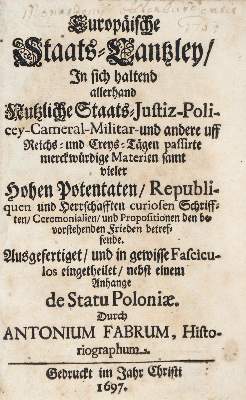 Europäische
Staats-Cantzley/
In sich haltend
allerhand
Nutzliche Staats-Justiz-Poli-
cey-Cameral-Militar-und andere uff
Reichs-und Creys-Tägen passirte
merckwürdige Materien samt
vieler
Hohen Potentaten/ Republi-
quen und Herrschafften curiosen Schriff-
ten/ Ceremonialien/ und Propositionen den be-
vorstehenden Frieden betref-
fende.
Ausgefertiget/ und in gewisse Fascicu-
los eingetheilet/ nebst einem
Anhange
de Statu Poloniæ.
Durch
ANTONIUM FABRUM, Histo-
riographum.
Gedruckt im Jahr Christi
1697.